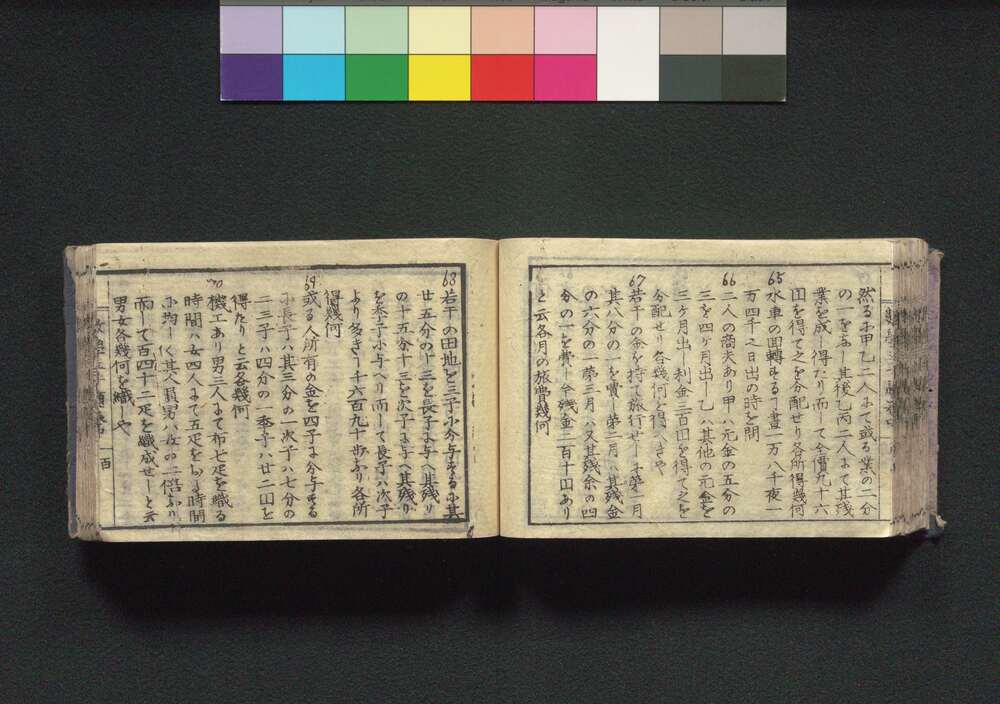 然るに甲乙二人にて或る業の二分
の一を為し其後乙丙二人にて其残
業を成し得たり而して今賃九十六
円を得て之を分配せり各所得幾何
65
水車の回轉する丁晝一万八千夜一
万四千之日出の時を問
66
二人の商夫あり甲ハ元金の五分の
三を四ヶ月出し乙ハ其他の元金を
三ヶ月出し利金三百円を得て之を
分配せり各幾何を得へきや
67
若干の金を持て旅行せし者第一月
其八分の一を費し第二月ハ其残金
の六分の一第三月ハ又其残余の四
分の一を費し今残金二百十円あり
と云各月の旅費幾何
68
若干の田地を三子に分与する に其
廿五分の十三を長子に与へ其残り
の十五分十三を次子に与へ其残り
を季子に与へり而して長子ハ次子
より多き丁十六百九十歩より各所
得幾何
69
或る人所有の金を四子に分与する
に長子ハ其三分の一次子ハ七分の
二三子ハ四分の一季子ハ廿二円を
得たりと云各幾何
70
機工あり男三人にて布七疋を織る
時間ハ女四人にて五疋を織る時間
に均しく其人員男ハ女の二倍なり
而して百四十二疋を織成せしと云
男女各幾何を織しや
百